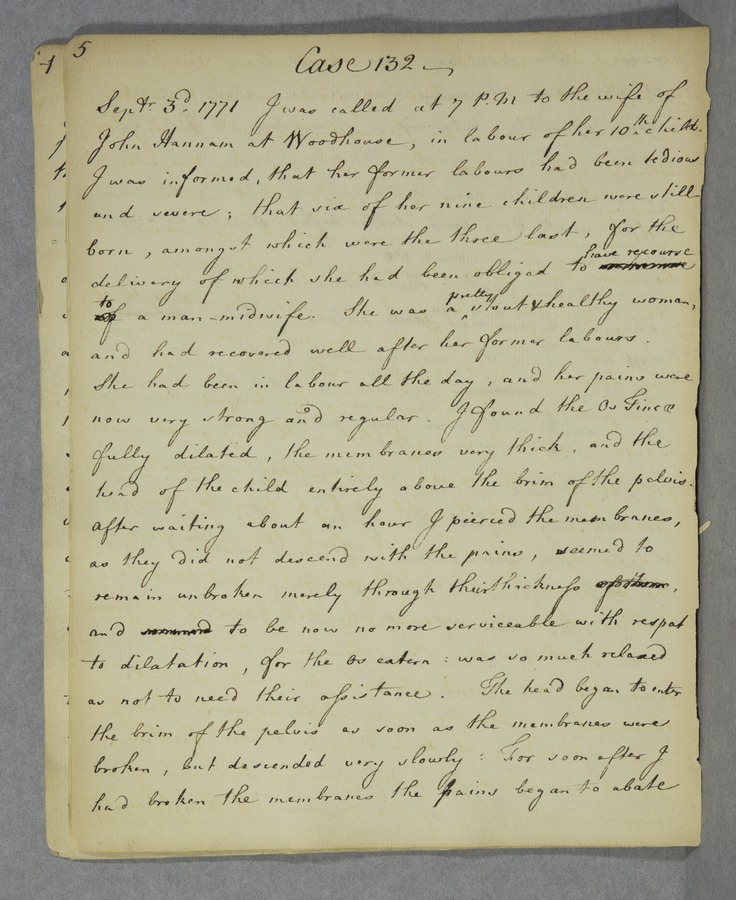 5
Case 132
Septr. 3d. 1771 I was called at 7 P.M to the wife of
John Hannam at Woodhouse, in labour of her 10th. child.
I was informed, that her former labours had been tedious
and severe; that six of her nine children were still
born, amongst which were the three last, for the
delivery of which she had been obliged to have recourse
to a man-midwife. She was a pretty stout & healthy woman,
and had recovered well after her former labours.
She had been in labour all the day, and her pains were
now very strong and regular. I found the Os Tincæ
fully dilated, the membranes very thick, and the
head of the child entirely above the brim of the pelvis.
After waiting about an hour I pierced the membranes,
as they did not descend with the pains, seemed to
remain unbroken merely through their thickness,
and to be now no more serviceable with respect
to dilatation, for the os extern: was so much relaxed
as not to need their assistance. The head began to enter
the brim of the pelvis as soon as the membranes were
broken, but descended very slowly: For soon after I
had broken the membranes the pains began to abate